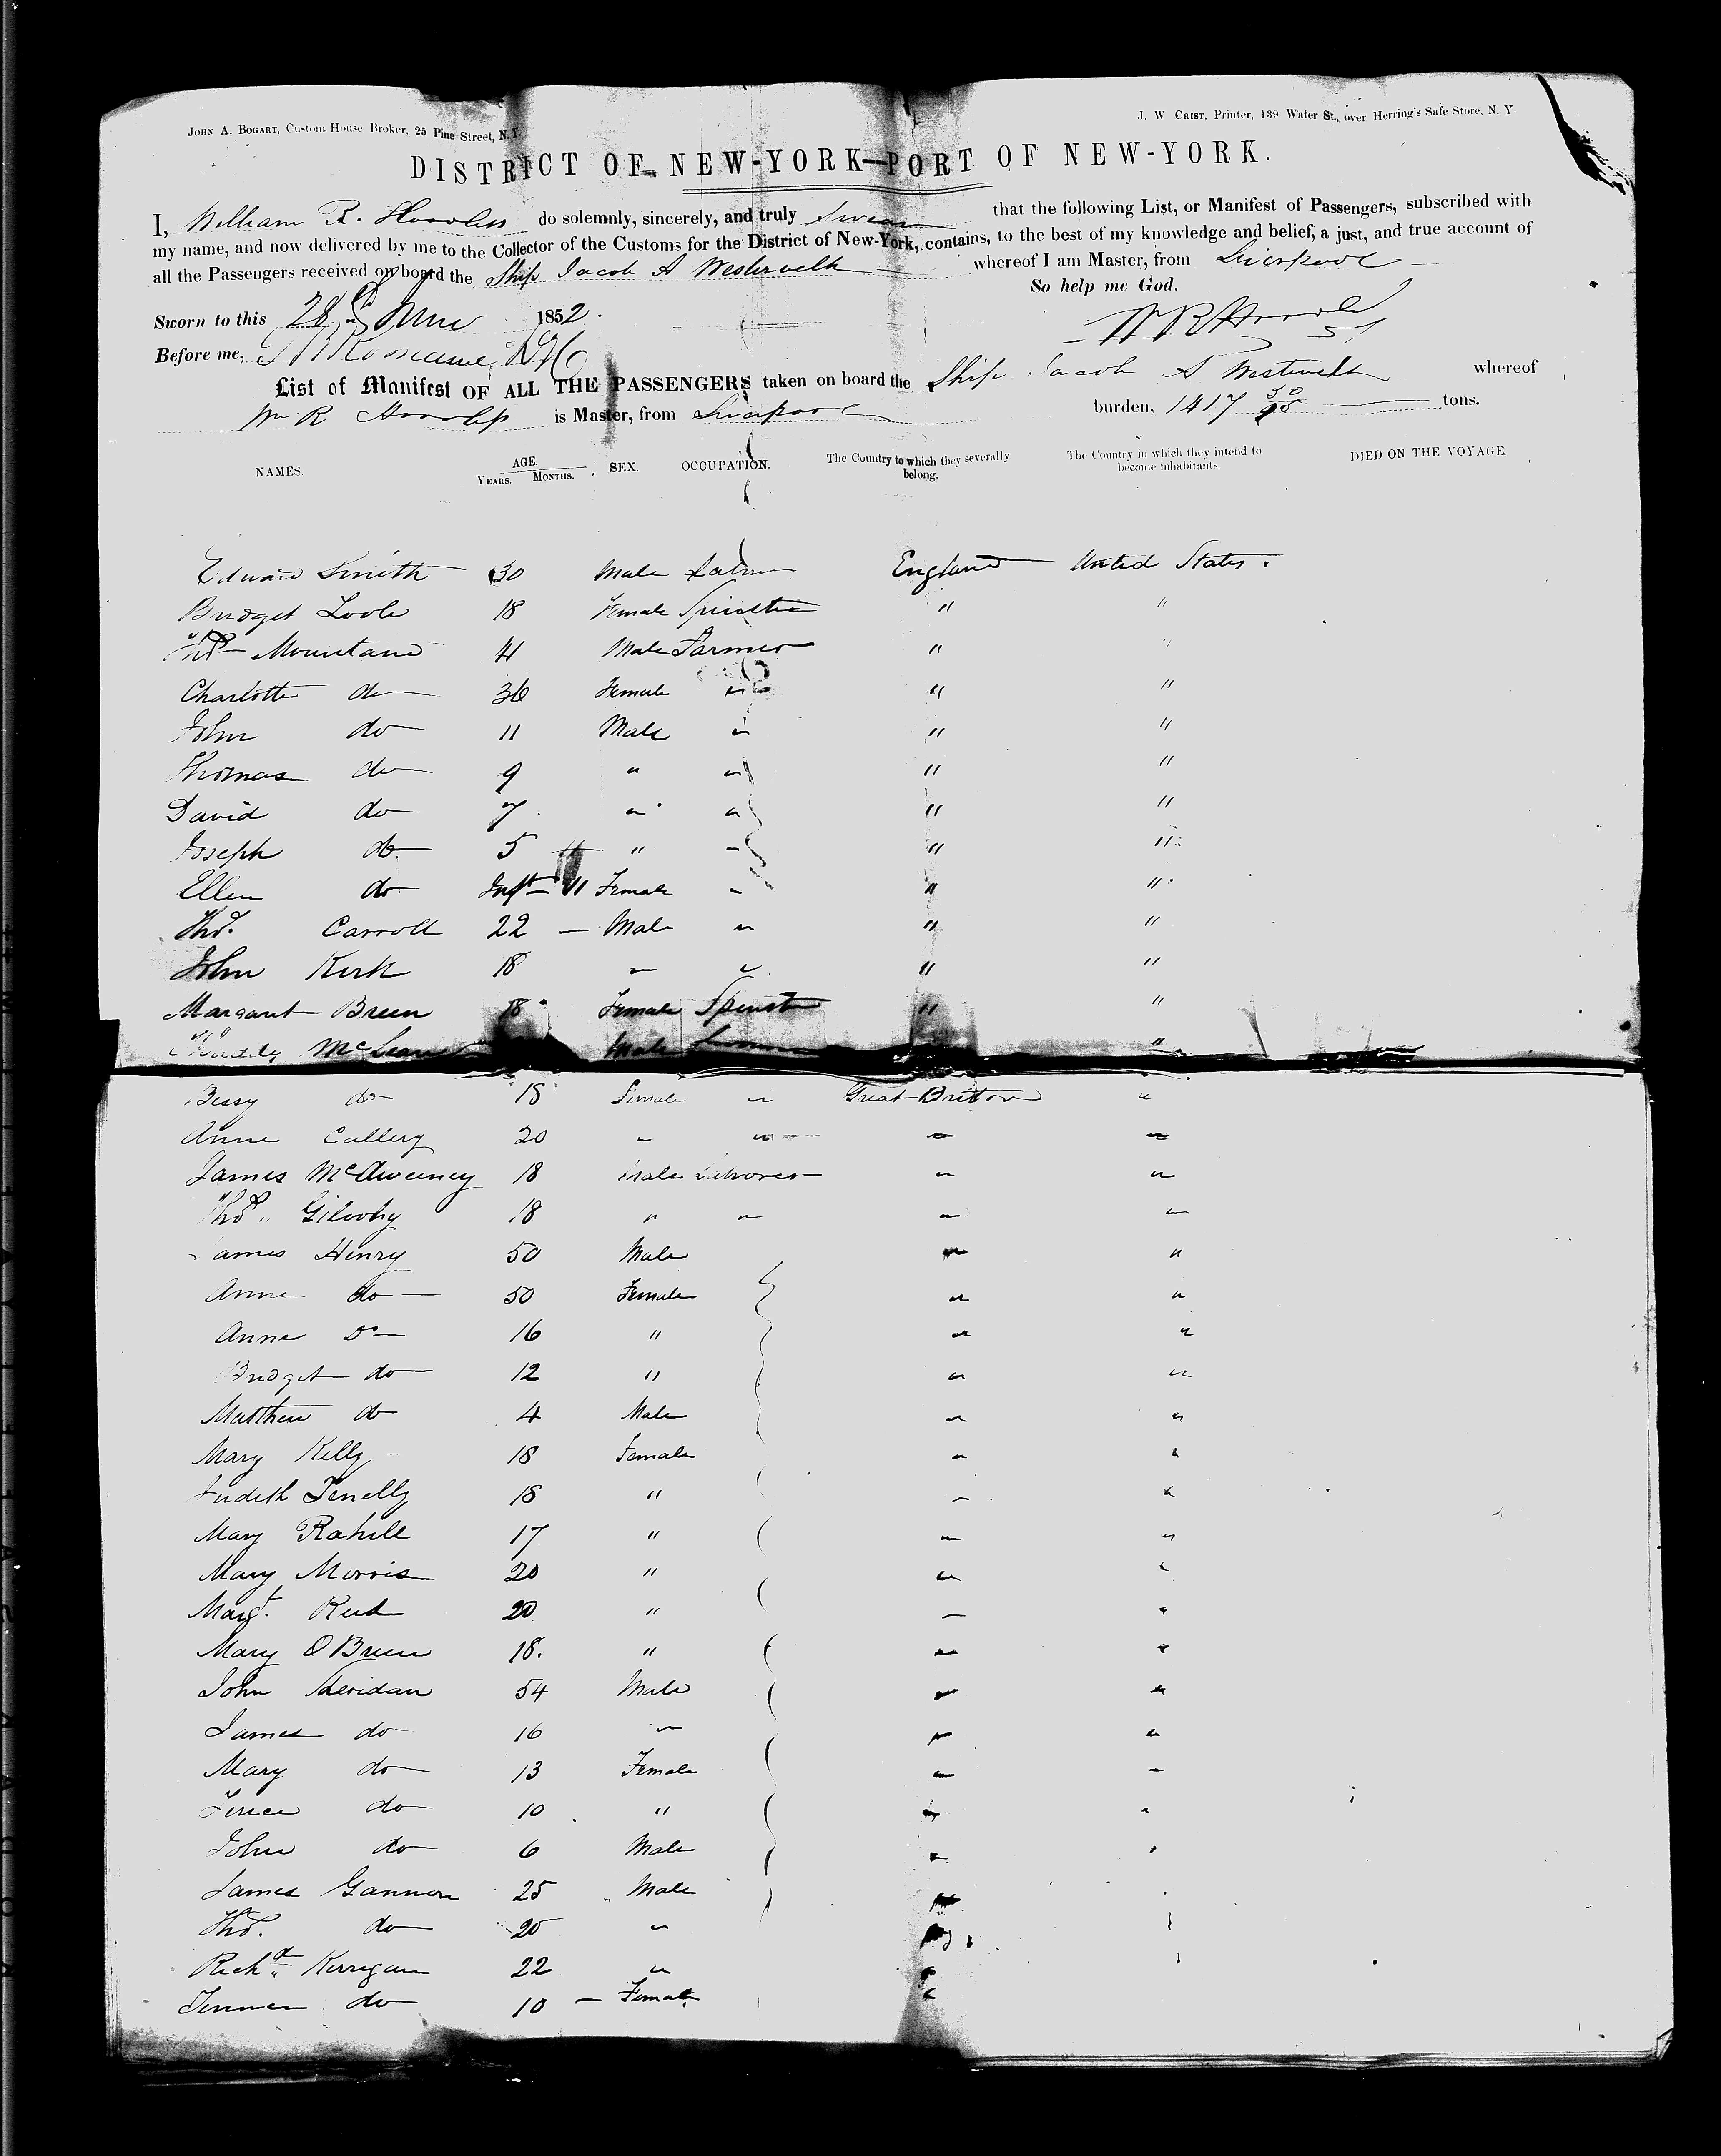 JOHN A. BOGART, Custom House Broker, 25 Pine Street, N.Y.
J. W. CRIST, Printer, 139 Water St., over Herring's Safe Store, N. Y.
DISTRICT OF NEW-YORK—PORT OF NEW-YORK.
I, William R. do solemnly, sincerely, and truly Swear that the following List, or Manifest of Passengers, subscribed with
my name, and now delivered by me to the Collector of the Customs for the District of New-York, contains, to the best of my knowledge and belief, a just, and true account of
all the Passengers received on board the Ship Jacob A Westervelt whereof I am Master, from Liverpool
So help me God.
Sworn to this 28th June 1852.
Before me,
List of Manifest OF ALL THE PASSENGERS taken on board the Ship Jacob A Westervelt whereof
Wm R is Master, from Liverpool burden, 1417 tons.
NAMES. AGE. YEARS. MONTHS. SEX. OCCUPATION. The Country to which they severally belong. The Country in which they intend to become inhabitants. DIED ON THE VOYAGE.
Edward Smith 30 Male England United States.
Bridget Toole 18 Female Spinster " "
Thos Mountand 41 Male Farmer " "
Charlotte do 36 Female " " "
John do 11 Male " " "
Thomas do 9 " " " "
David do 7 " " " "
Joseph do 5 " " " "
Ellen do Inft 11 Female " " "
Thos. Carroll 22 — Male " " "
John Kirk 18 " " " "
Margaret Breen 18 Female Spinster " "
McLean Male "
Bessy do 18 Female " Great Briton "
Anne Callery 20 " " " "
James McAweeney 18 Male Labourer " "
Thos Gilooly 18 " " " "
James Henry 50 Male " "
Anne do 50 Female " "
Anne Do 16 " " "
Bridget do 12 " " "
Matthew do 4 Male " "
Mary Kelly 18 Female " "
Judith 18 " " "
Mary Rahill 17 " " "
Mary Morris 20 " " "
Margt. Reed 20 " " "
Mary O Brien 18. " " "
John Sheridan 54 Male " "
James do 16 " " "
Mary do 13 Female " "
do 10 " " "
John do 6 Male " "
James Gannon 25 Male "
Thos. do 20 "
Richd Kerrigan 22 "
do 10 — Female "